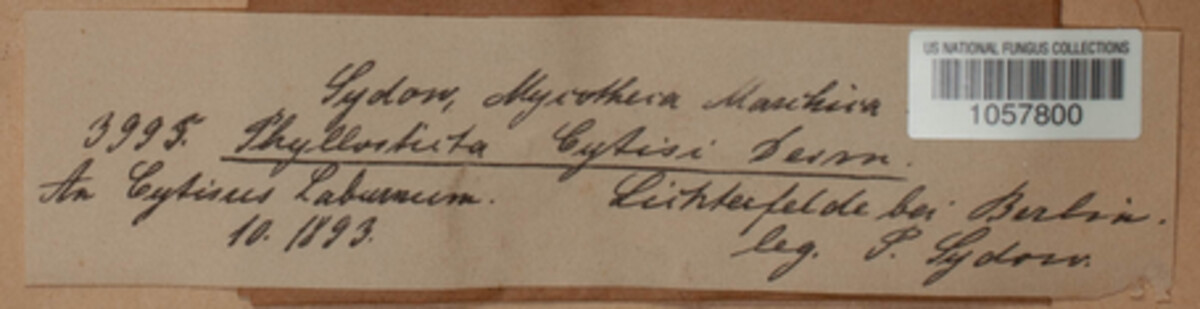 US NATIONAL FUNGUS COLLECTIONS
1057800
Sydow, Mycotheca Marchica
3995. Phyllosticta Cytisi Desm.
An Cytisus Laburnum. Lichterfelde bei Berlin.
10. 1893. leg. P. Sydow.